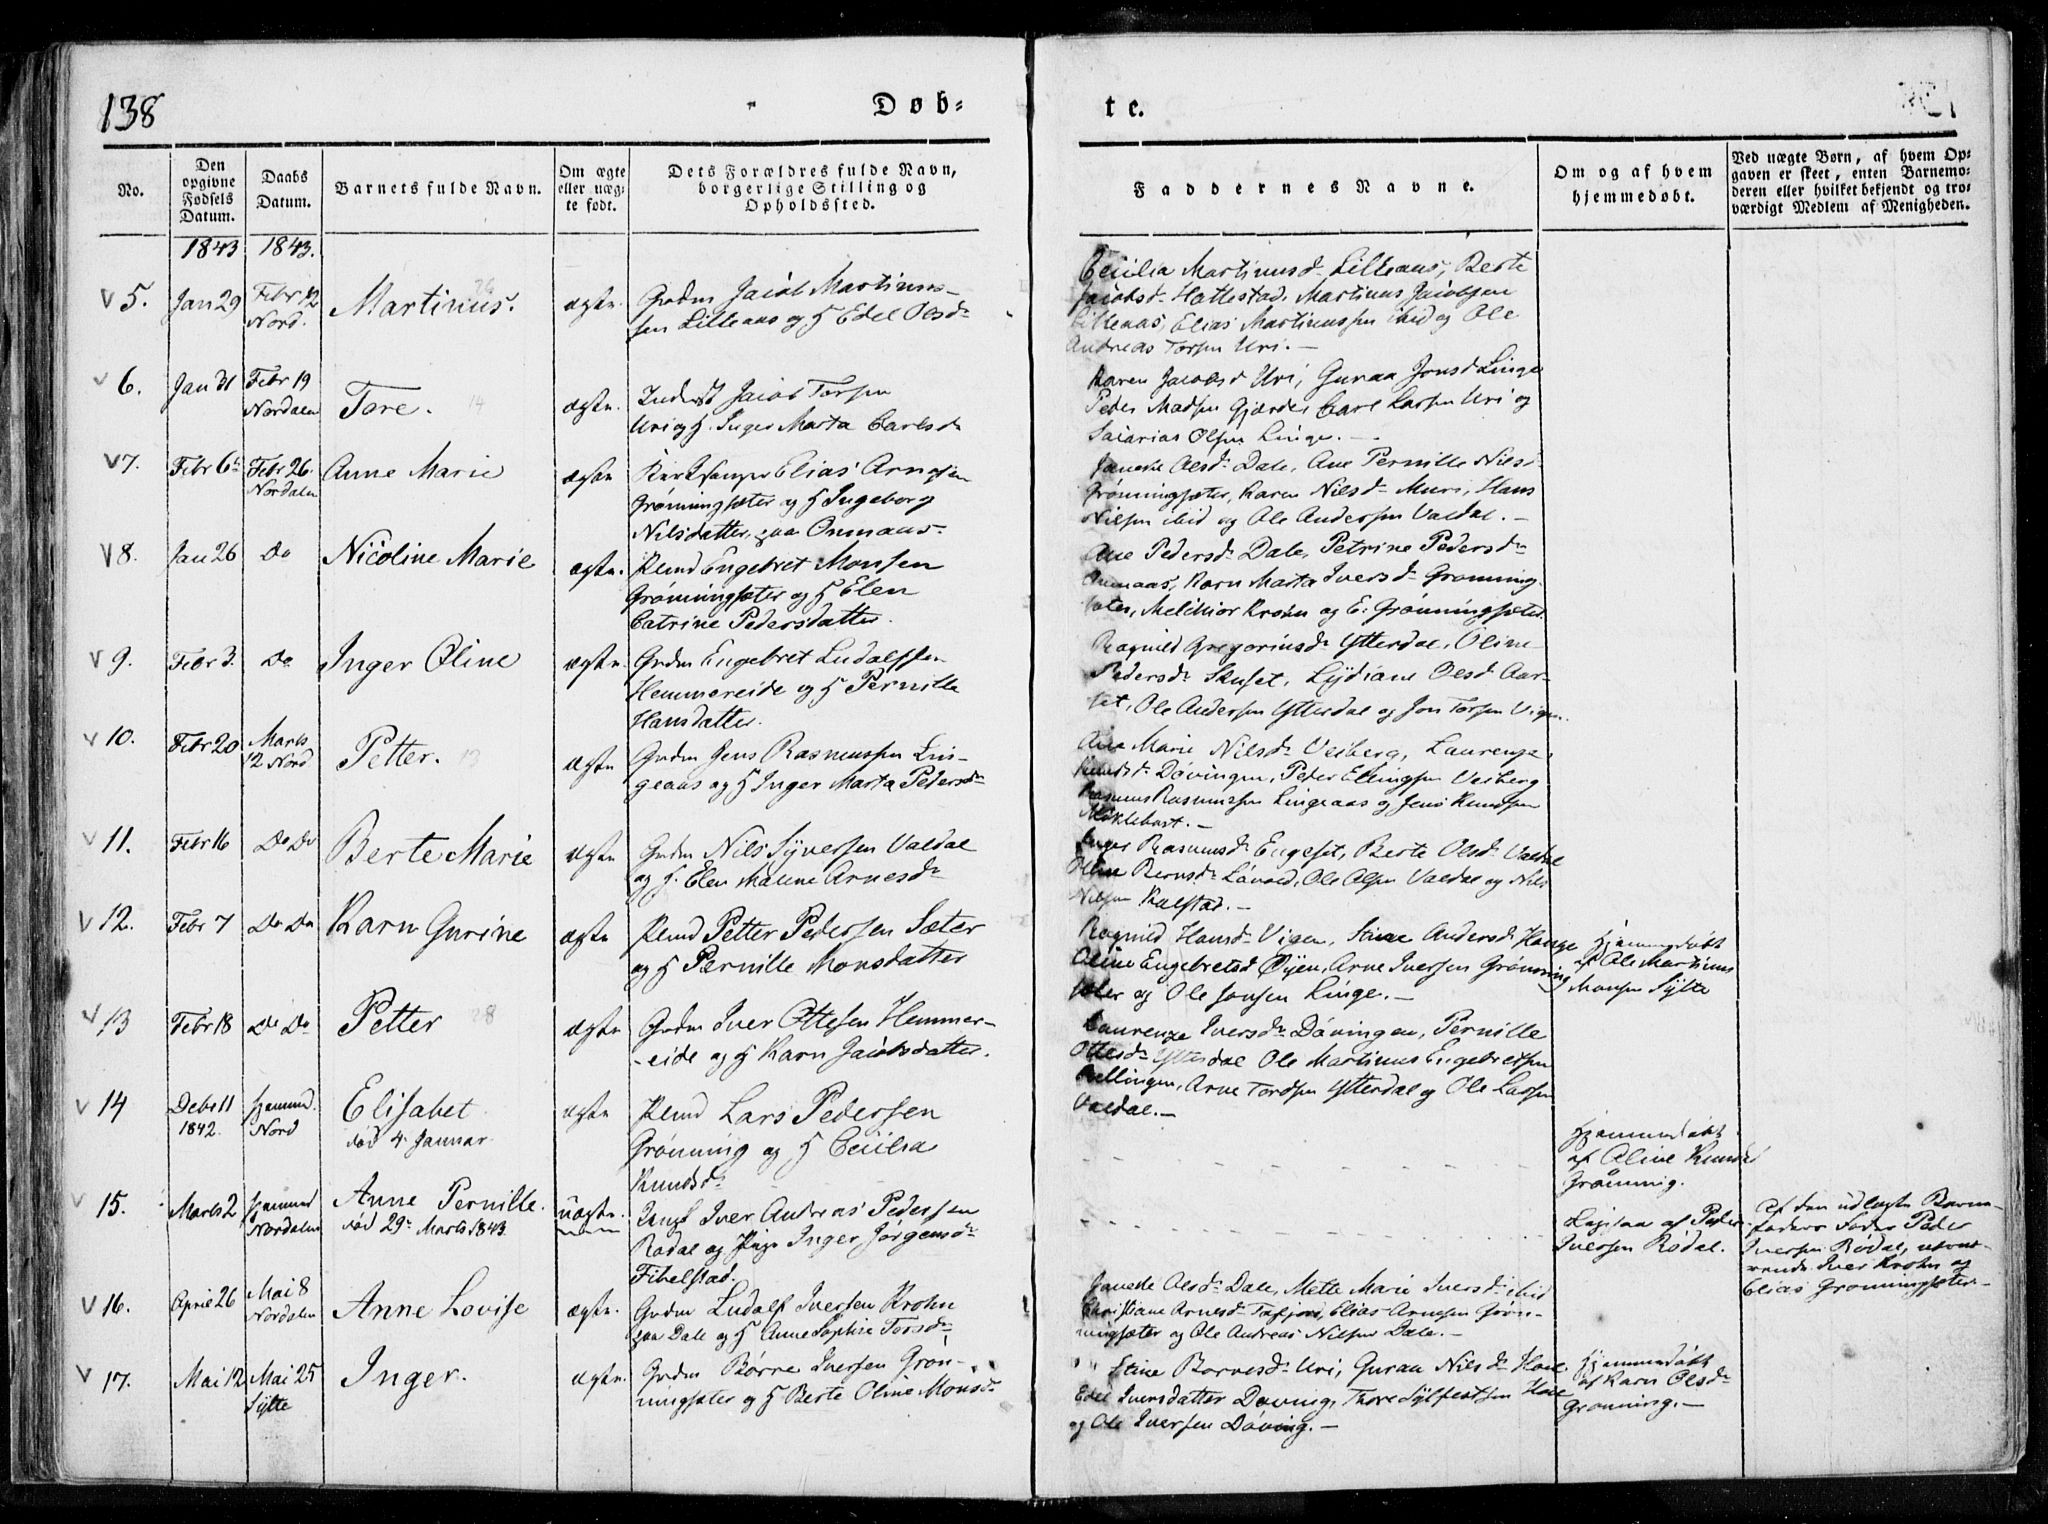 138
Døb-
te.
No.
Den opgivne Fødsels Datum.
Daabs Datum.
Barnets fulde Navn.
Om ægte eller uæg-te født.
Dets Forældres fulde Navn, borgerlige Stilling og Opholdssted.
Faddernes Navne.
Om og af hvem hjemmedøbt.
Ved uægte Børn, af hvem Op-
gaven er skeet, enten Barnemo-
deren eller hvilket bekjendt og tro-
værdigt Medlem af Menigheden.
1843 1843.
5. Jan 29 Febr 12 Nord. Martinus. ægte.
Grdm Jacob Martinus-
sen Lilleaas og H Edel Olsdr
Cecilia Martinusdr Lilleaas, Berte
Jacobsdr Hattestad, Martinus Jacobsen
Lilleaas, Elias Martinussen ibid og Ole
Andreas Torsen Uri.-
6. Jan 31 Febr 19 Nordalen Tore. ægte.
Inderst Jacob Torsen
Uri og H. Inger Marta Carlsdr
Karen Jacobsd Uri, Guraa Jonsd Linge
Peder Madsen Gjærde, Carl Larsen Uri og
Sacarias Olsen Linge.-
7. Febr 6 Febr 26. Nordalen Anne Marie ægte
Kirksanger Elias Arnesen
Grønningsæter og H Ingeborg
Nilsdatter paa Onmaas.
Olsdr Dale, Ane Pernille Nilsd
Grønningsæter, Karen Nilsdr Muri, Hans
Nilsen ibid og Ole Andersen Valdal.-
8. Jan 26 Do Nicoline Marie ægte.
Plmd Engebret Monsen
Grønningsæter og H Elen
Catrine Pedersdatter.
Ane Pedersdr Dale, Petrine Pedersdr
Onmaas, Karn Marta Iversdr Grønning-
sæter, Melchior Krohn og E: Grønningsæter
9. Febr 3. Do Inger Oline ægte.
Grdm Engebret Ludolfsen
Hemmereide og H Pernille
Hansdatter.
Ragnild Gregoriusdr Ytterdal, Oline
Pedersdr Skuset, Lydiane Olesd Aar-
set, Ole Andersen Ytterdal og Jon Torsen Vigen.
10. Febr 20 Marts 12 Nord Petter. ægte
Grdm Jens Rasmussen Lin-
geaas og H Inger Marta Pedersdr
Ane Marie Nilsdr Veiberg, Laurense
Knudsdr Døvingen, Peder Ellingsen Veiberg
Rasmus Rasmussen Lingeaas og Jens Knudsen
Myklebust.-
11. Febr 16 Do Do Berte Marie ægte
Grdm Nils Syversen Valdal
og H. Elen Malene Arnesdr
Inger Rasmusdr Engeset, Berte Olsdr Valdal
Oline Berntsdr Løvold, Ole Olsen Valdal og Nils
Nilsen Kalstad.-
12. Febr 7 Do Do Karn Gurine ægte
Plmd Petter Pedersen Sæter
og H Pernille Monsdatter
Ragnild Hansdr Vigen, Andersdr Hauge
Oline Engebretsd Øyen, Arne Iversen Grønning
sæter og Ole Jonsen Linge.-
Hjemmedøbt
af Ole Martinus
Monsen Sylte
13 Febr 18 Do Do Petter ægte
Grdm Iver Ottesen Hemmer-
-eide og H Karn Jacobsdatter.
Laurense Iversdr Døvingen, Pernille
Ottesdr Ytterdal Ole Martinus Engebretsen
Rellingen, Arne Tordsen Ytterdal og Ole Larsen
Valdal.-
14 Debr 11 1842. Hjemmed. Nord Elisabet ægte
død 4 Januar
Plmd Lars Pedersen
Grønning og H Cecilia
Knudsdr
Hjemmedøbt
af Oline Knudsd
Grønning.
15. Marts 2 Hjemmed Nordalen Anne Pernille. uægte.
død 29 Marts 1843.
Ungk Iver Andreas Pedersen
Rødal og Pige Inger Jørgensdr
Fibelstad.
Ligesaa af Peder
Iversen Rødal.
Af den udlagte Barne-
faders Fader Peder
Iversen Rødal,
Iver Krohn og
Elias Grønningsæter.-
16. April 26 Mai 8 Nordalen Anne Lovise ægte.
Grdm Ludolf Iversen Krohn
paa Dale og H Anne Sophie Torsdr
Olsdr Dale, Mette Marie Iversdr ibid
Christiane Arnesdr Tafjord, Elias Arnesen Grøn-
ningsæter og Ole Andreas Nilsen Dale.-
17. Mai 12 Mai 25 Sylte Inger. ægte.
Grdm Børre Iversen Grøn-
ningsæter og H Berte Oline Monsdr
Eline Børresdr Uri, Guraa Nilsdr Hoel
Edel Iversdatter Døving, Thore Sylfestsen Hoel
og Ole Iversen Døving.-
Hjemmedøbt
af Karn Olsdr
Grønning.-